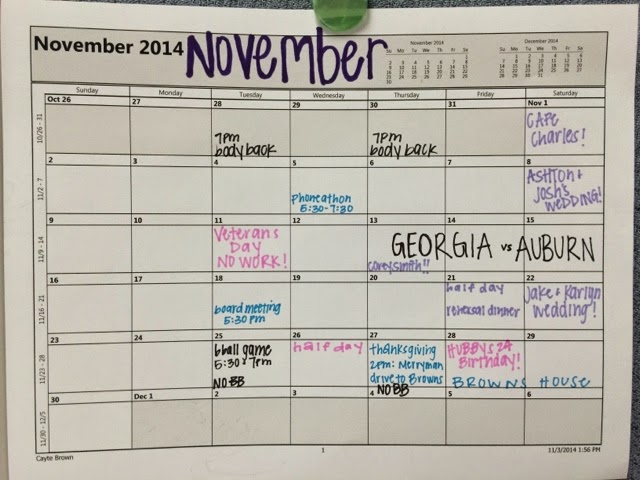 November 2014
NOVEMBER
November 2014
December 2014
Sunday Monday Tuesday Wednesday Thursday Friday Saturday
10/26 - 31
Oct 26 27 28 29 30 31 Nov 1
7pm
body back
7pm
body back
CAPE
Charles!
11/2 - 7
2 3 4 5 6 7 8
Phoneathon
5:30-7:30
ASHTON +
JOSH'S
WEDDING!
11/9 - 14
9 10 11 12 13 14 15
Veterans
DAY
NO WORK!
GEORGIA vs AUBURN
coreysmith!!
11/16 - 21
16 17 18 19 20 21 22
board meeting
5:30 pm
half day
rehersal dinner
Jake + Karlyn
Wedding!
11/23 - 28
23 24 25 26 27 28 29
bball game
5:30 + 7pm
NO BB
half day
thanksgiving
2pm: Merryman
drive to Browns
NO BB
HUBBYS 24
Birthday!
BROWNS HOUSE
11/30 - 12/5
30 Dec 1 2 3 4 5 6
Cayte Brown
1
11/3/2014 1:56 PM